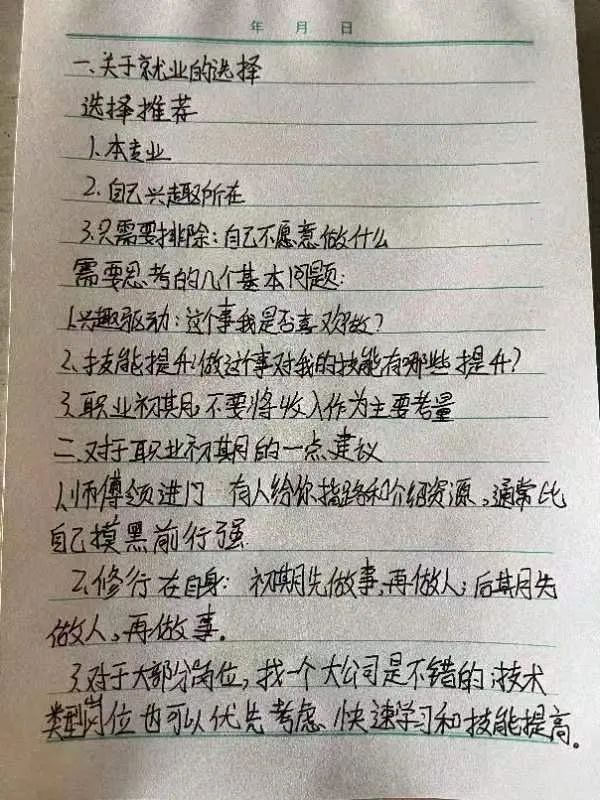 年 月 日
一.关于就业的选择
选择推荐
1.本专业
2.自己兴趣所在
3.只需要排除:自己不愿意做什么
需要思考的几个基本问题:
1.兴趣驱动:这个事我是否喜欢做?
2.技能提升:做这个事对我的技能有哪些提升?
3.职业初期,不要将收入作为主要考量
二.对于职业初期的一点建议
1.师傅领进门 有人给你指路和介绍资源,通常比
自己摸黑前行强
2.修行在自身: 初期先做事,再做人;后期先
做人,再做事。
3.对于大部分岗位,找一个大公司是不错的;技术
类型岗位也可以优先考虑 快速学习和技能提高。